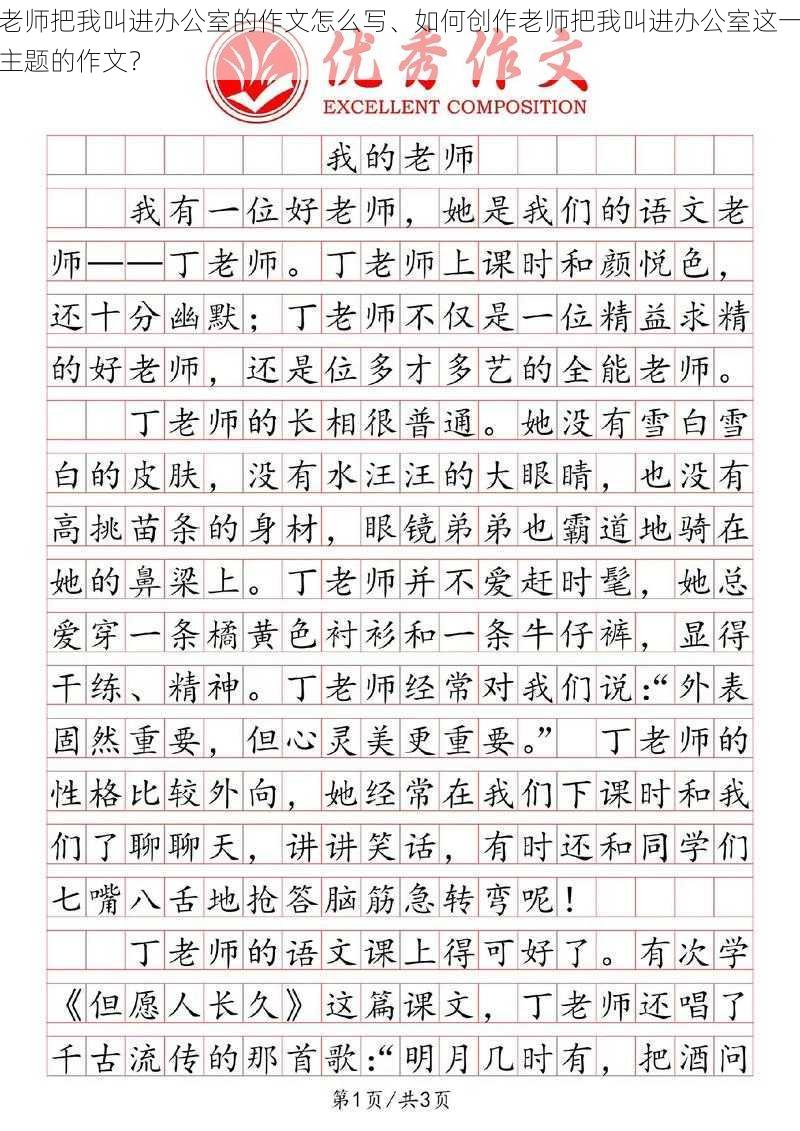 老师把我叫进办公室的作文怎么写、如何创作老师把我叫进办公室这一
主题的作文？
优秀作文
EXCELLENT COMPOSITION
我的老师
我有一位好老师，她是我们的语文老
师——丁老师。丁老师上课时和颜悦色，
还十分幽默；丁老师不仅是一位精益求精
的好老师，还是位多才多艺的全能老师。
丁老师的长相很普通。她没有雪白雪
白的皮肤，没有水汪汪的大眼睛，也没有
高挑苗条的身材，眼镜弟弟也霸道地骑在
她的鼻梁上。丁老师并不爱赶时髦，她总
爱穿一条橘黄色衬衫和一条牛仔裤，显得
干练、精神。丁老师经常对我们说：“外表
固然重要，但心灵美更重要。” 丁老师的
性格比较外向，她经常在我们下课时和我
们了聊聊天，讲讲笑话，有时还和同学们
七嘴八舌地抢答脑筋急转弯呢！
丁老师的语文课上得可好了。有次学
《但愿人长久》这篇课文，丁老师还唱了
千古流传的那首歌：“明月几时有，把酒问
第1页/共3页